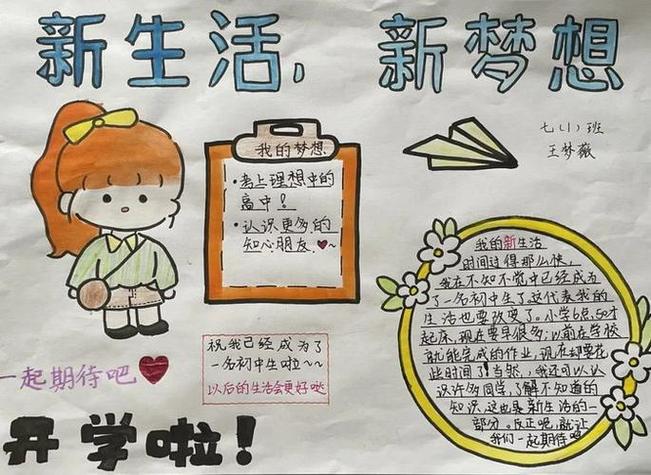 新生活，新梦想
七（1）班
王梦薇
我的梦想
·考上理想中的
高中！
·认识更多的
知心朋友❤~
祝我已经成为了
一名初中生啦~~
以后的生活会更好哒
一起期待吧
开学啦！
我的新生活
时间过得那么快，
我在不知不觉中已经成为
了一名初中生了这代表我的
生活也要改变了。小学6点50才
起床，现在要早很多；以前在学校
就能完成的作业，现在却要花
些时间了！当然，我还可以认
识许多同学，了解不知道的
知识，这也是新生活的一
部分。反正吧，就让
我们一起期待吧